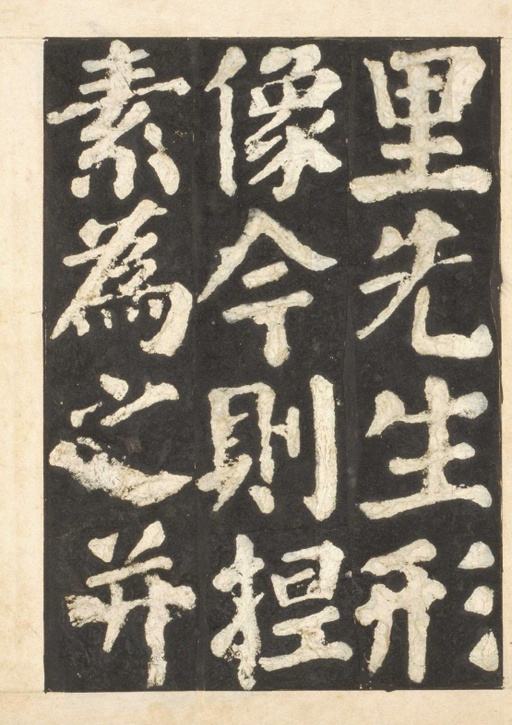 里先生形
像今則捏
素為之并